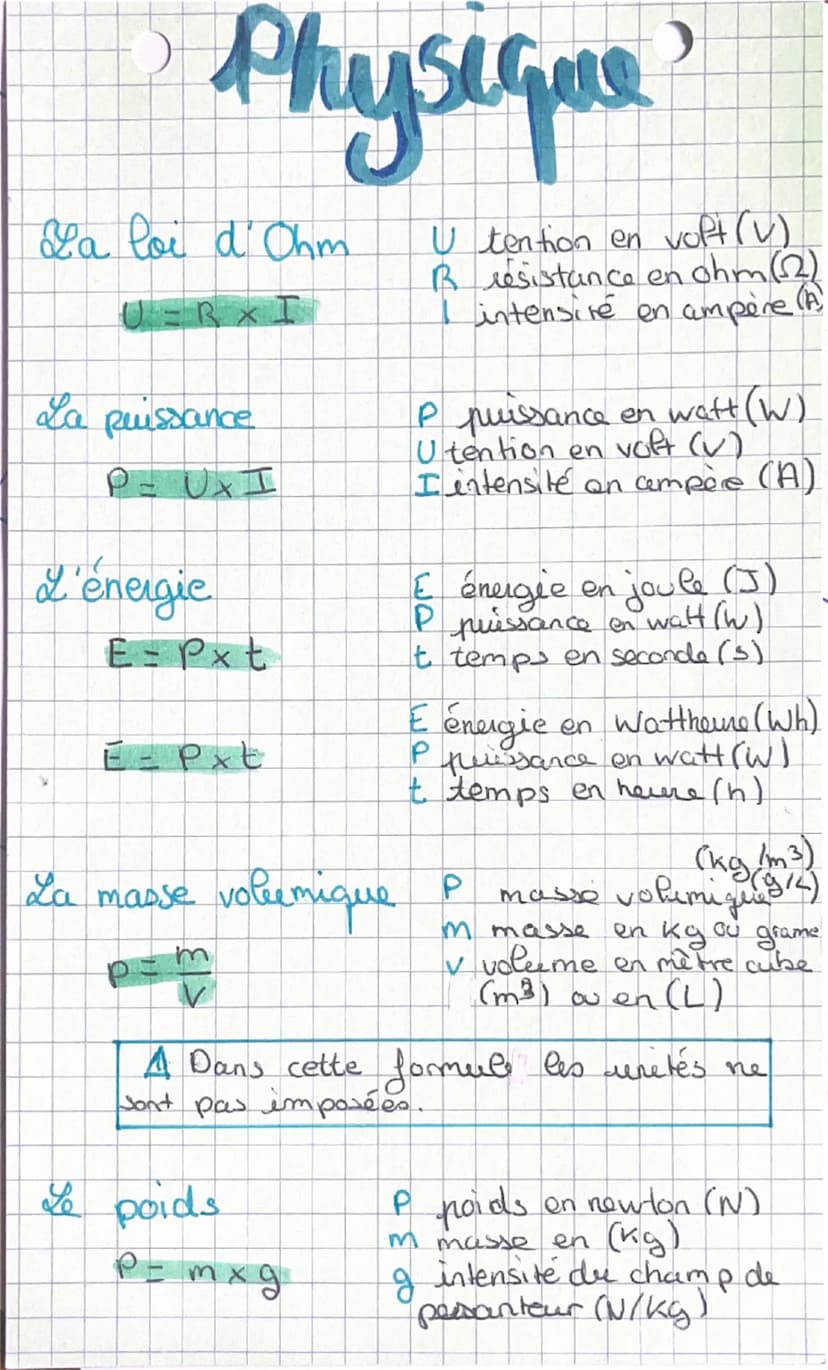 Physique
La loi d'Ohm
U = R x I
U tention en volt (V)
R résistance en ohm (Ω)
I intensité en ampère (A)
La puissance
P = U x I
P puissance en watt (W)
U tention en volt (V)
I intensité en ampère (A)
L'énergie
E = P x t
E énergie en joule (J)
P puissance en watt (W)
t temps en seconde (s)
E = P x t
E énergie en Wattheure (Wh)
P puissance en watt (W)
t temps en heure (h)
La masse volumique
ρ = m/V
(kg/m³)
ρ masse volumique (g/L)
m masse en kg ou grame
V volume en mètre cube
(m³) ou en (L)
⚠ Dans cette formule les unités ne
sont pas imposées.
Le poids
P = m x g
P poids en newton (N)
m masse en (kg)
g intensité du champ de
pesanteur (N/kg)